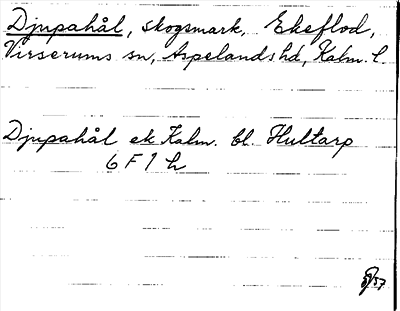 Djupahål, skogsmark, Ekeflod,
Virserums sn, Aspelands hd, Kalm. l.
Djupahål ek Kalm. bl. Hultarp
6 F 1 h